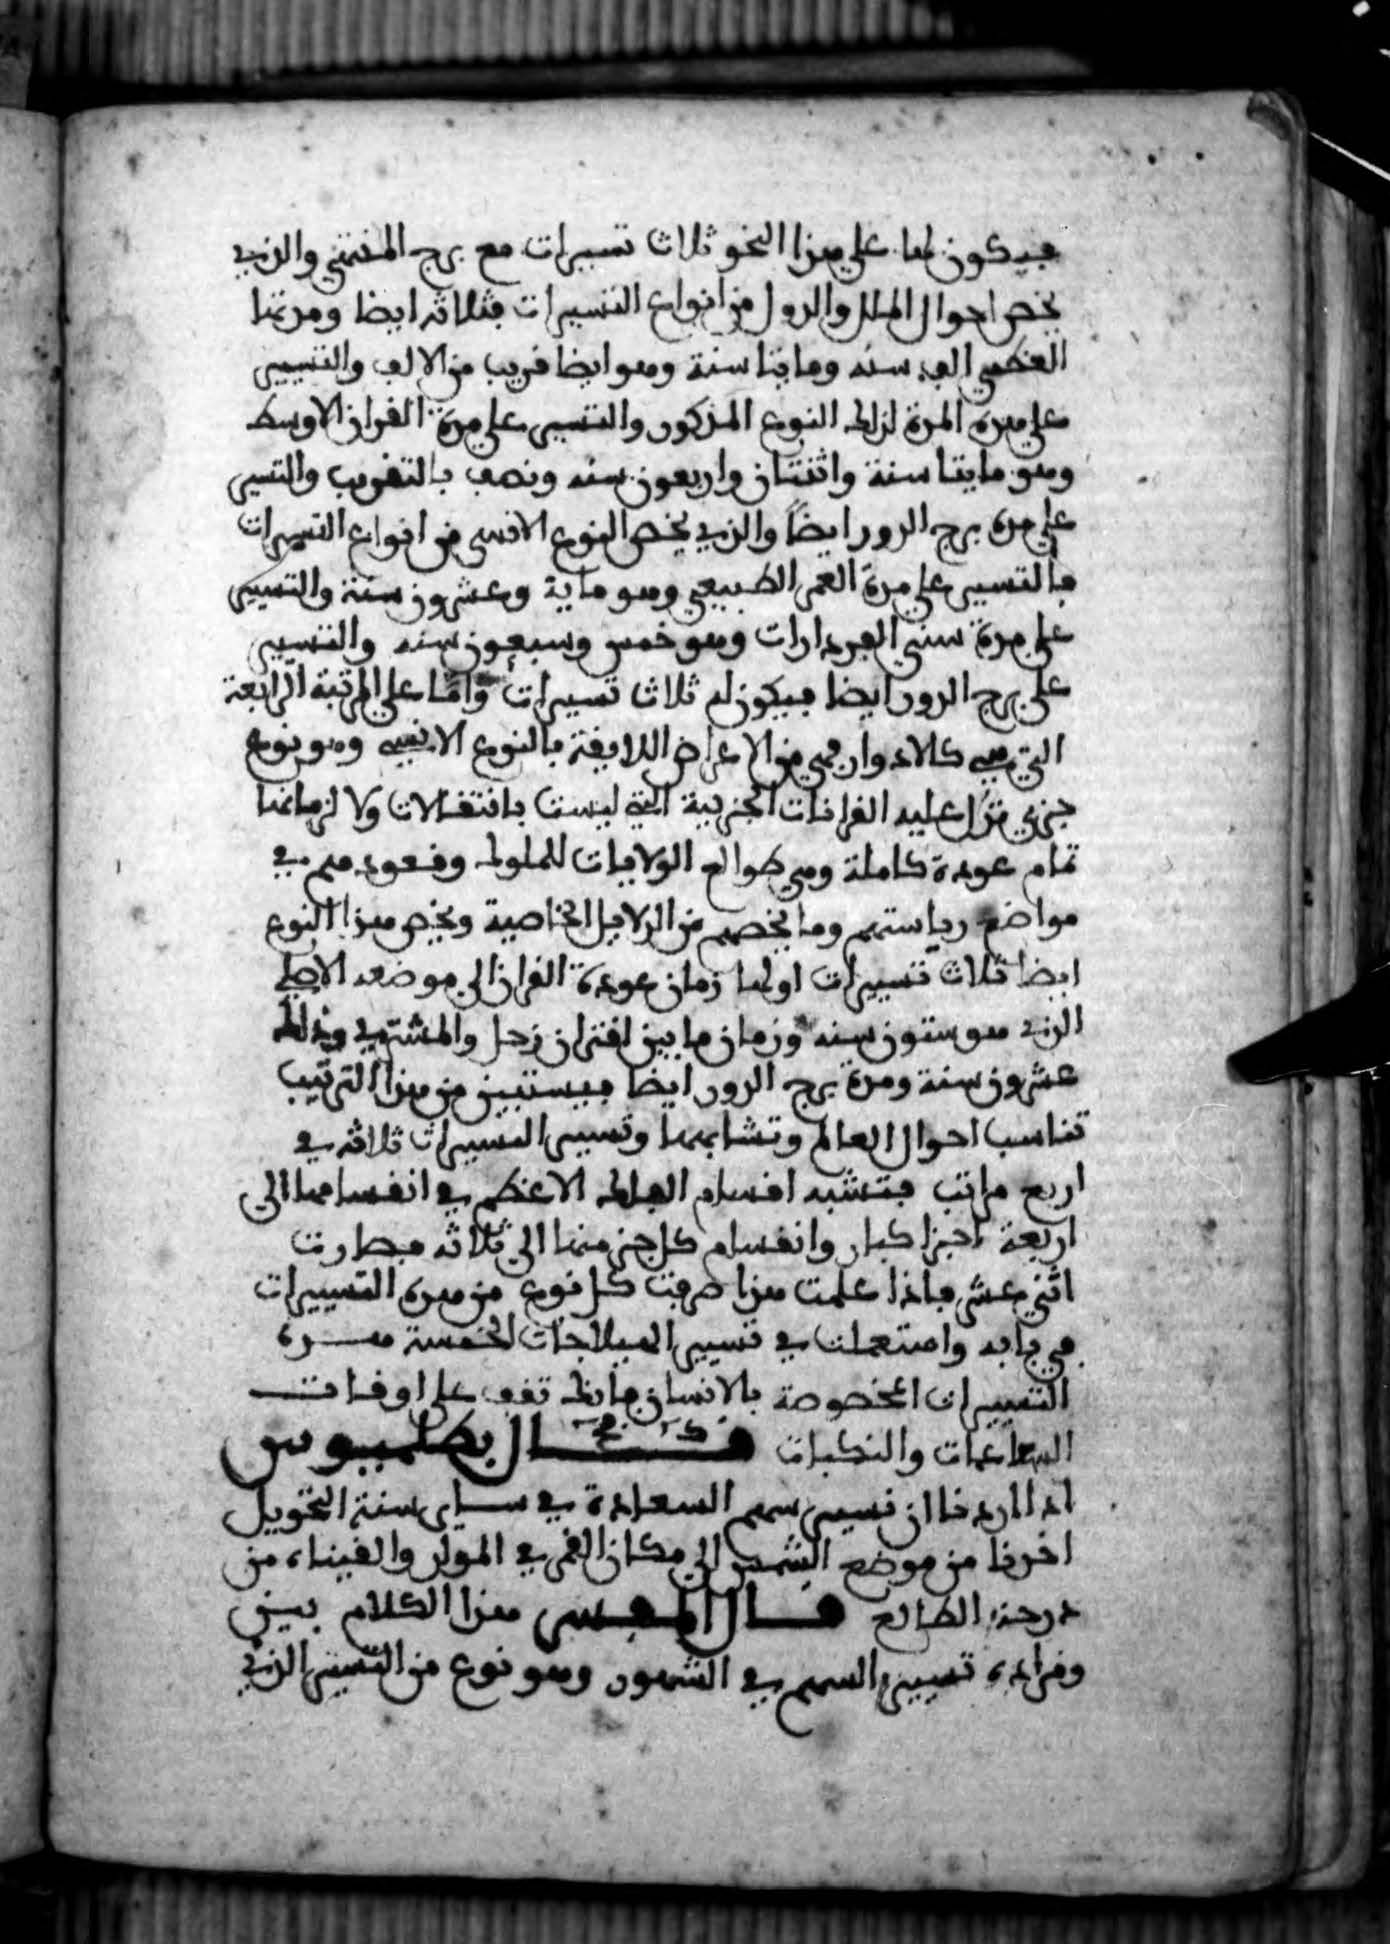 فيكون لها على هذا النحو ثلاث تسييرات مع برج المنتهى والذي
يخص احوال الملل والدول من انواع التسييرات فثلاثه ايضا ومدتها
العظمى الف سنه ومايتا سنة وهو ايضا قريب من الالف والتسيير
على هذه المدة لذلك النوع المذكور والتسيير على مدة القران الاوسط
وهو مايتا سنة واثنتان واربعون سنه ونصف بالتقريب والتسيير
على مدة برج الدور ايضاً والذي يخص النوع الانسي من انواع التسييرات
فالتسيير على مدة العمر الطبيعي وهو ماية وعشرون سنة والتسيير
على مدة سني الفردارات وهو خمس وسبعون سنه والتسيير
على برج الدور ايضا فيكون له ثلاث تسييرات وامّا على المرتبة الرابعة
التي هي كالادوار فهي من الاعراض اللايقة بالنوع الانسي وهو نوع
جزءي تدل عليه القرانات الجزئية التي ليست بانتقالات ولا لزمانها
تمام عودة كاملة وهي طوالع الولايات للملوك وقعودهم في
مواضع رياستهم وما يخصهم من الدلايل الخاصية ويخص هذا النوع
ايضا ثلاث تسييرات اولها زمان عودة القران الى موضعه الاصلي
الذي هو ستون سنه وزمان ما بين اقتران زحل والمشتري وذلك
عشرون سنة ومدة برج الدور ايضا فيستبين من هذا الترتيب
تناسب احوال العالم وتشابهها وتسيير التسييرات ثلاثه في
اربع مراتب فتشبه اقسام الفلك الاعظم في انقسامها الى
اربعة اجزا كبار وانقسام كل جزء منها الى ثلاثه فصارت
اثني عشر فاذا علمت هذا صرفت كل نوع من هذه التسييرات
في بابه واستعملت في تسيير الهيلاجات الخمسة هذه
التسييرات المخصوصة بالانسان فانك تقف على اوقات
السعادات والنكبات قال بطلميوس
اذا اردنا ان نسير سهم السعادة في ساير سنة التحويل
اخذنا من موضع الشمس الى مكان القمر في المولد والقيناه من
درجة الطالع قال المفسر هذا الكلام بين
ومراده تسيير السهم في الشهور وهو نوع من التسيير الذي